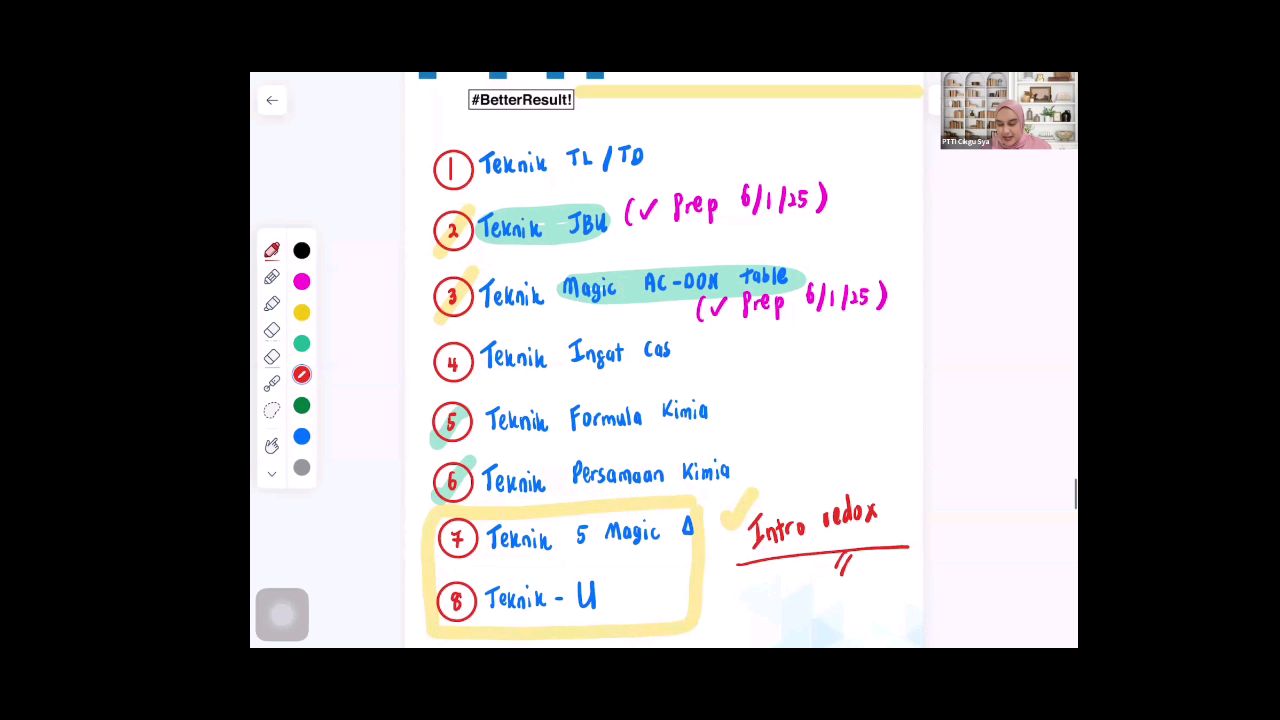 #BetterResult!
PTTI Cikgu Sya
1 Teknik TL/TD
2 Teknik JBU (✓ Prep 6/1/25)
3 Teknik Magic AC-DON table
(✓ Prep 6/1/25)
4 Teknik Ingat Cas
5 Teknik Formula Kimia
6 Teknik Persamaan Kimia
7 Teknik 5 Magic Δ ✓ Intro redox
8 Teknik - U